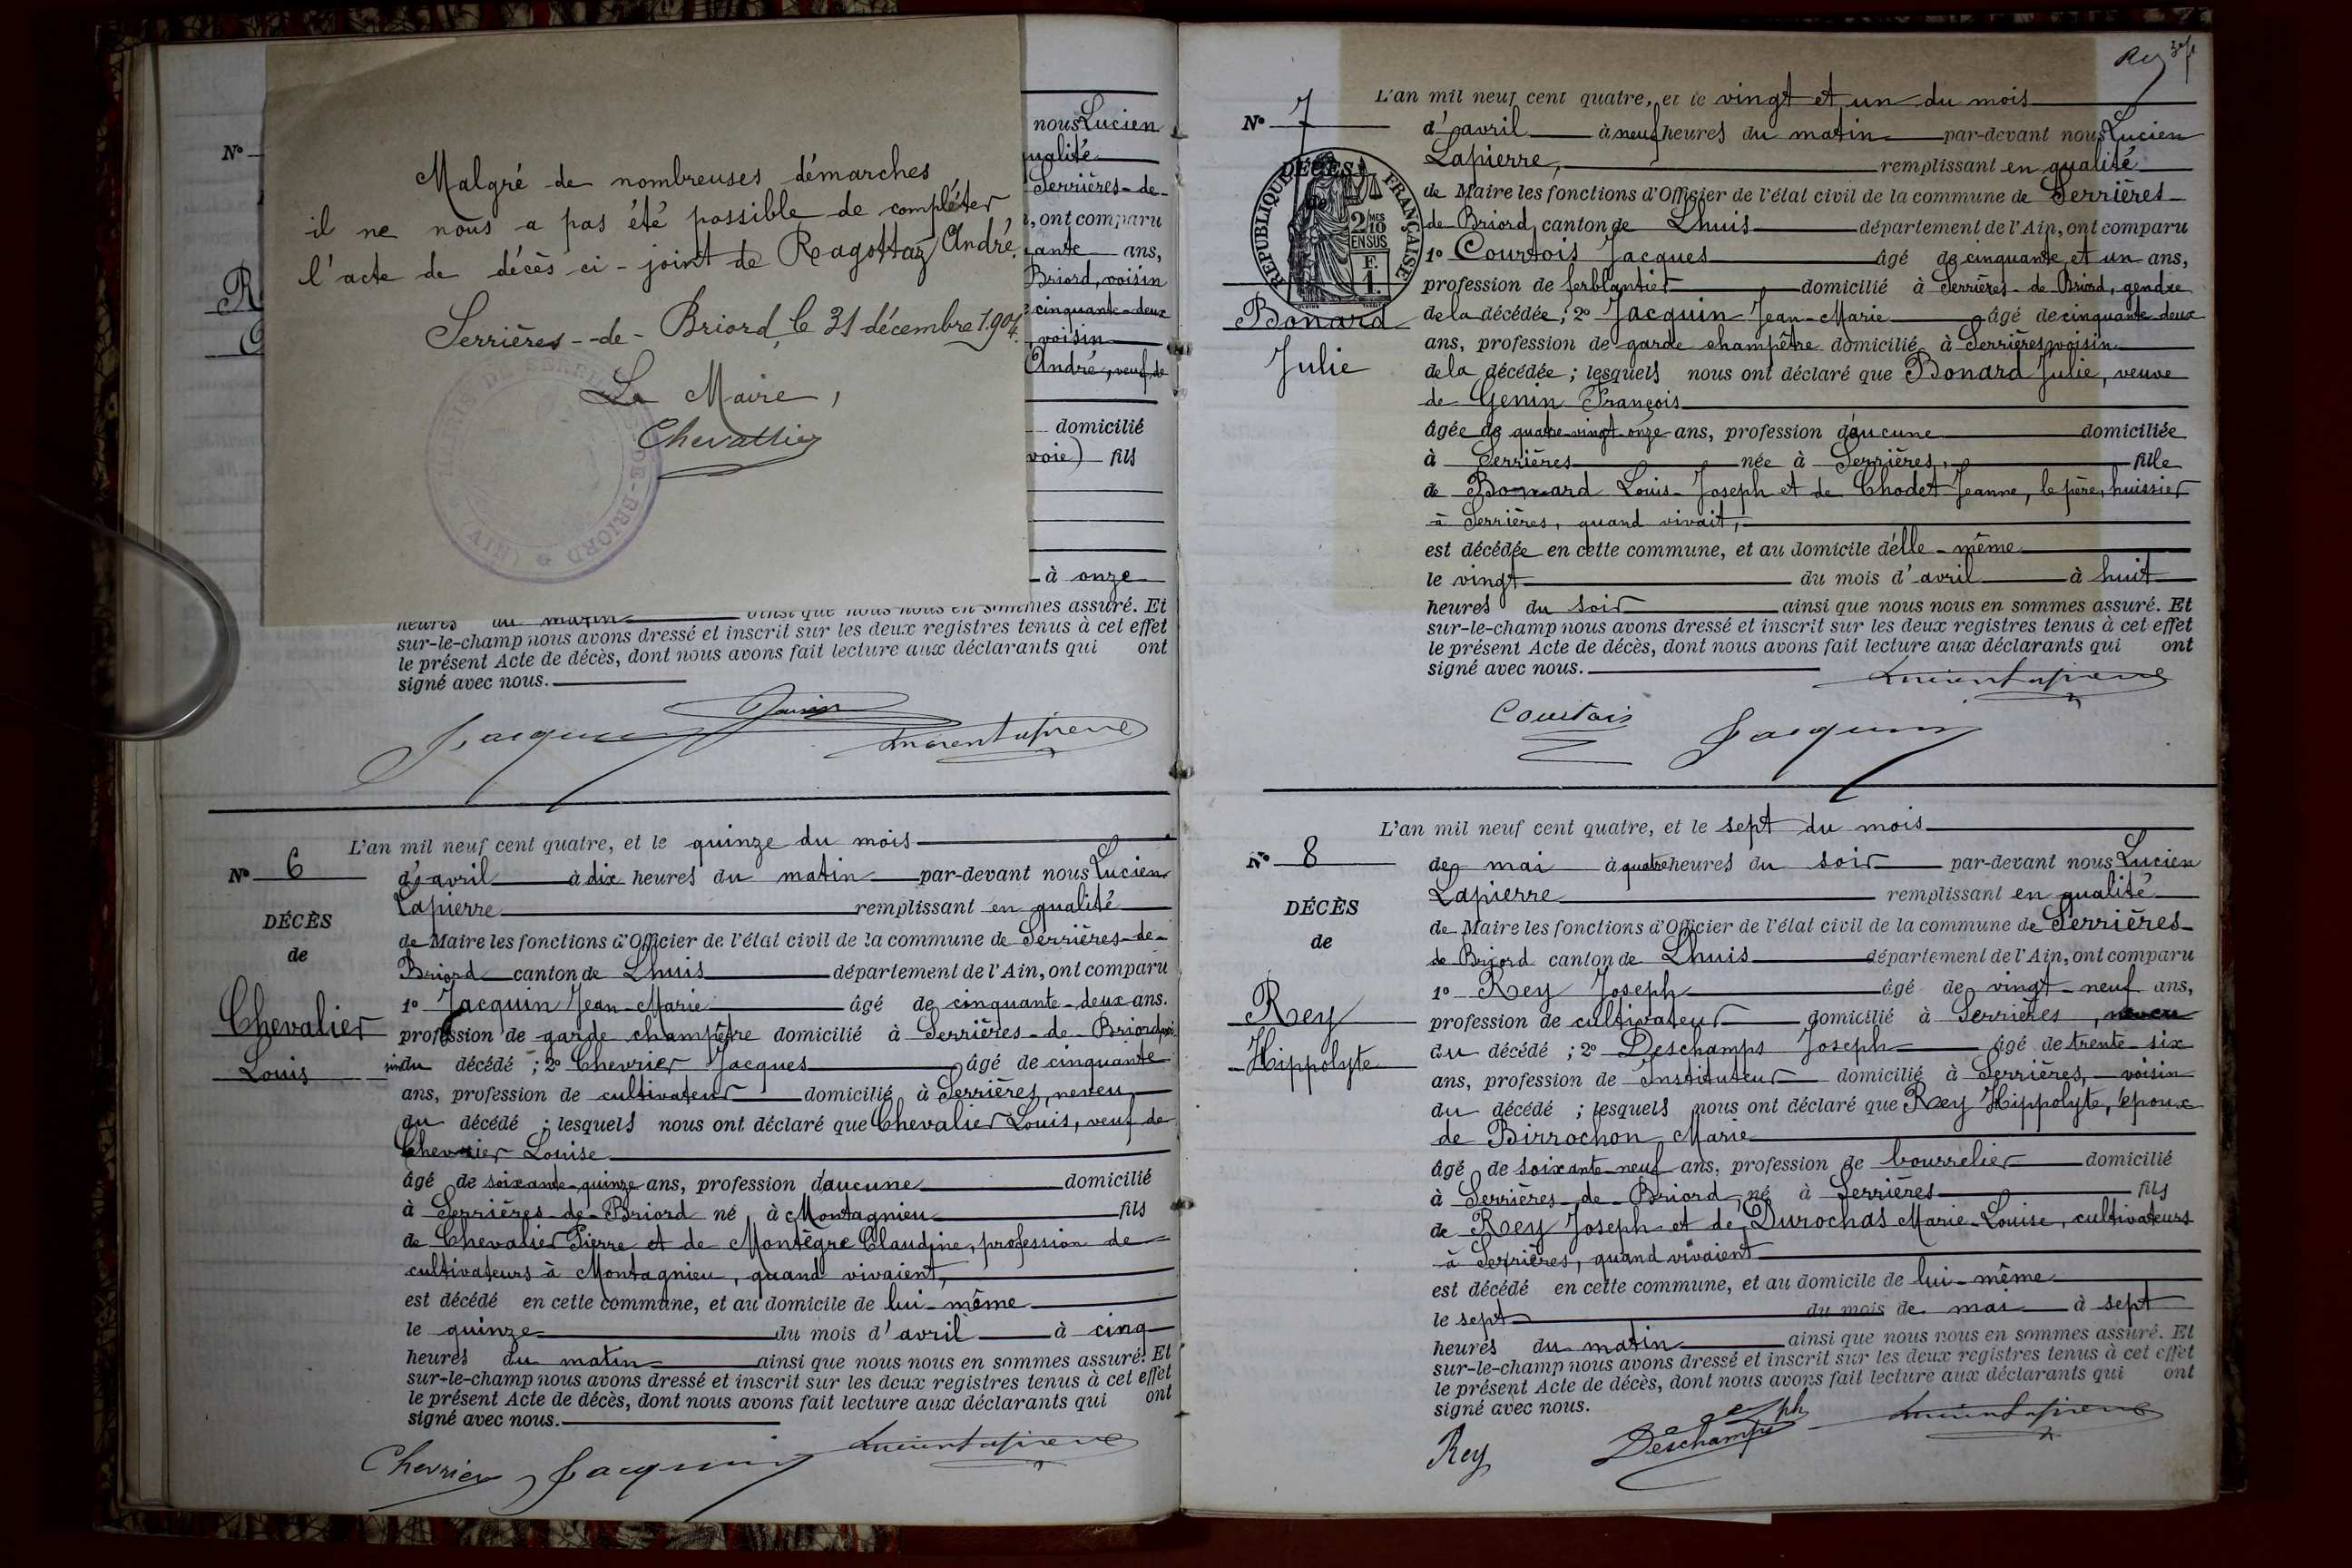 Malgré de nombreuses démarches
il ne nous a pas été possible de compléter
l'acte de décès ci-joint de Ragottaz André.
Serrières-de-Briord, le 31 décembre 1904.
Le Maire,
Chevallier
MAIRIE DE SERRIÈRES-DE-BRIORD (AIN)
No
R
C
nous Lucien
qualité
Serrières-de-
, ont comparu
ans,
Briord, voisin
cinquante-deux
, voisin
André, veuf de
domicilié
voie) fils
à onze
heures du matin ainsi que nous nous en sommes assuré. Et
sur-le-champ nous avons dressé et inscrit sur les deux registres tenus à cet effet
le présent Acte de décès, dont nous avons fait lecture aux déclarants qui ont
signé avec nous.
Jacquin Lucien Lapierre
No 6
DÉCÈS
de
Chevalier
Louis
L'an mil neuf cent quatre, et le quinze du mois
d'avril à dix heures du matin par-devant nous Lucien
Lapierre remplissant en qualité
de Maire les fonctions d'Officier de l'état civil de la commune de Serrières-de-
Briord canton de Lhuis département de l'Ain, ont comparu
1o Jacquin Jean-Marie âgé de cinquante-deux ans.
profession de garde champêtre domicilié à Serrières-de-Briord, voi
sin du décédé ; 2o Chevrier Jacques âgé de cinquante
ans, profession de cultivateur domicilié à Serrières, neveu
du décédé ; lesquels nous ont déclaré que Chevalier Louis, veuf de
Chevrier Louise
âgé de soixante-quinze ans, profession d'aucune domicilié
à Serrières-de-Briord né à Montagnieu fils
de Chevalier Pierre et de Montègre Claudine, profession de
cultivateurs à Montagnieu, quand vivaient,
est décédé en cette commune, et au domicile de lui-même
le quinze du mois d'avril à cinq
heures du matin ainsi que nous nous en sommes assuré. Et
sur-le-champ nous avons dressé et inscrit sur les deux registres tenus à cet effet
le présent Acte de décès, dont nous avons fait lecture aux déclarants qui ont
signé avec nous.
Chevrier Jacquin Lucien Lapierre
No 7
DÉCÈS
de
RÉPUBLIQUE FRANÇAISE
2/10 MES
EN SUS
F.
1.
Bonard
Julie
L'an mil neuf cent quatre, et le vingt et un du mois
d'avril à neuf heures du matin par-devant nous Lucien
Lapierre, remplissant en qualité
de Maire les fonctions d'Officier de l'état civil de la commune de Serrières-
de Briord, canton de Lhuis département de l'Ain, ont comparu
1o Courtois Jacques âgé de cinquante et un ans,
profession de ferblantier domicilié à Serrières-de Briord, gendre
de la décédée ; 2o Jacquin Jean-Marie âgé de cinquante deux
ans, profession de garde champêtre domicilié à Serrières, voisin
de la décédée ; lesquels nous ont déclaré que Bonard Julie, veuve
de Genin François
âgée de quatre-vingt-onze ans, profession d'aucune domiciliée
à Serrières née à Serrières, fille
de Bonard Louis-Joseph et de Chodet Jeanne, le père, huissier
à Serrières, quand vivait,
est décédée en cette commune, et au domicile d'elle-même
le vingt du mois d'avril à huit
heures du soir ainsi que nous nous en sommes assuré. Et
sur-le-champ nous avons dressé et inscrit sur les deux registres tenus à cet effet
le présent Acte de décès, dont nous avons fait lecture aux déclarants qui ont
signé avec nous.
Lucien Lapierre
Courtois Jacquin
No 8
DÉCÈS
de
Rey
Hippolyte
L'an mil neuf cent quatre, et le sept du mois
de mai à quatre heures du soir par-devant nous Lucien
Lapierre remplissant en qualité
de Maire les fonctions d'Officier de l'état civil de la commune de Serrières-
de Briord canton de Lhuis département de l'Ain, ont comparu
1o Rey Joseph âgé de vingt-neuf ans,
profession de cultivateur domicilié à Serrières, neveu
du décédé ; 2o Deschamps Joseph âgé de trente-six
ans, profession de Instituteur domicilié à Serrières, voisin
du décédé ; lesquels nous ont déclaré que Rey Hippolyte, époux
de Birrochon Marie
âgé de soixante-neuf ans, profession de bourrelier domicilié
à Serrières-de-Briord, né à Serrières fils
de Rey Joseph et de Durochas Marie-Louise, cultivateurs
à Serrières, quand vivaient
est décédé en cette commune, et au domicile de lui-même
le sept du mois de mai à sept
heures du matin ainsi que nous nous en sommes assuré. Et
sur-le-champ nous avons dressé et inscrit sur les deux registres tenus à cet effet
le présent Acte de décès, dont nous avons fait lecture aux déclarants qui ont
signé avec nous.
Rey Joseph Deschamps Lucien Lapierre